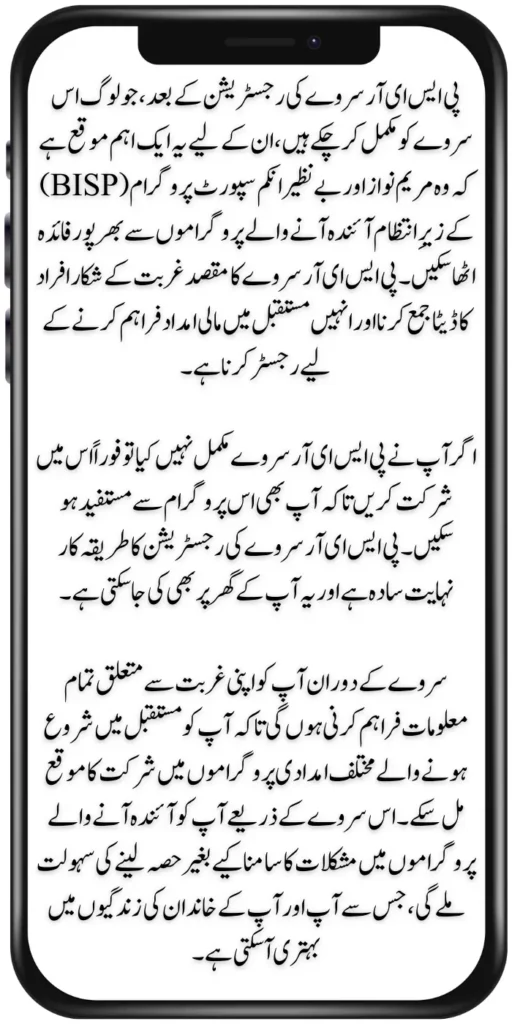 پی ایس ای آر سروے کی رجسٹریشن کے بعد، جو لوگ اس
سروے کو مکمل کر چکے ہیں، ان کے لیے یہ ایک اہم موقع ہے
کہ وہ مریم نواز اور بے نظیر انکم سپورٹ پروگرام (BISP)
کے زیرِ انتظام آئندہ آنے والے پروگراموں سے بھرپور فائدہ
اٹھا سکیں۔ پی ایس ای آر سروے کا مقصد غربت کے شکار افراد
کا ڈیٹا جمع کرنا اور انہیں مستقبل میں مالی امداد فراہم کرنے کے
لیے رجسٹر کرنا ہے۔
اگر آپ نے پی ایس ای آر سروے مکمل نہیں کیا تو فوراً اس میں
شرکت کریں تاکہ آپ بھی اس پروگرام سے مستفید ہو
سکیں۔ پی ایس ای آر سروے کی رجسٹریشن کا طریقہ کار
نہایت سادہ ہے اور یہ آپ کے گھر پر بھی کی جا سکتی ہے۔
سروے کے دوران آپ کو اپنی غربت سے متعلق تمام
معلومات فراہم کرنی ہوں گی تاکہ آپ کو مستقبل میں شروع
ہونے والے مختلف امدادی پروگراموں میں شرکت کا موقع
مل سکے۔ اس سروے کے ذریعے آپ کو آئندہ آنے والے
پروگراموں میں مشکلات کا سامنا کیے بغیر حصہ لینے کی سہولت
ملے گی، جس سے آپ اور آپ کے خاندان کی زندگیوں میں
بہتری آ سکتی ہے۔